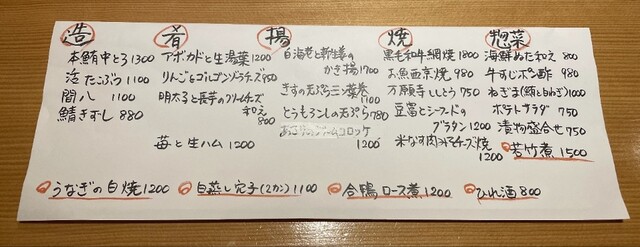 造
本鮪中とろ 1300
活たこぶつ 1100
間八 1100
鯖きずし 880
肴
アボカドと生湯葉 1200
りんごとゴルゴンゾーラチーズ 950
明太子と長芋のクリームチーズ
和え
800
苺と生ハム 1200
揚
白海老と新生姜の
かき揚 1700
きすの天ぷら三つ葉巻
1100
とうもろこしの天ぷら 780
コロッケ
1200
焼
黒毛和牛網焼 1800
お魚西京焼 980
万願寺ししとう 750
豆富とシーフードの
グラタン 1200
米なす肉みそチーズ焼
1200
惣菜
海鮮ぬた和え 800
牛すじポン酢 980
ねぎま(鮪とねぎ) 1000
ポテトサラダ 750
漬物盛合せ 750
若竹煮 1500
うなぎの白焼 1200
白蒸し穴子(2カン) 1100
合鴨ロース煮 1200
ひれ酒 800